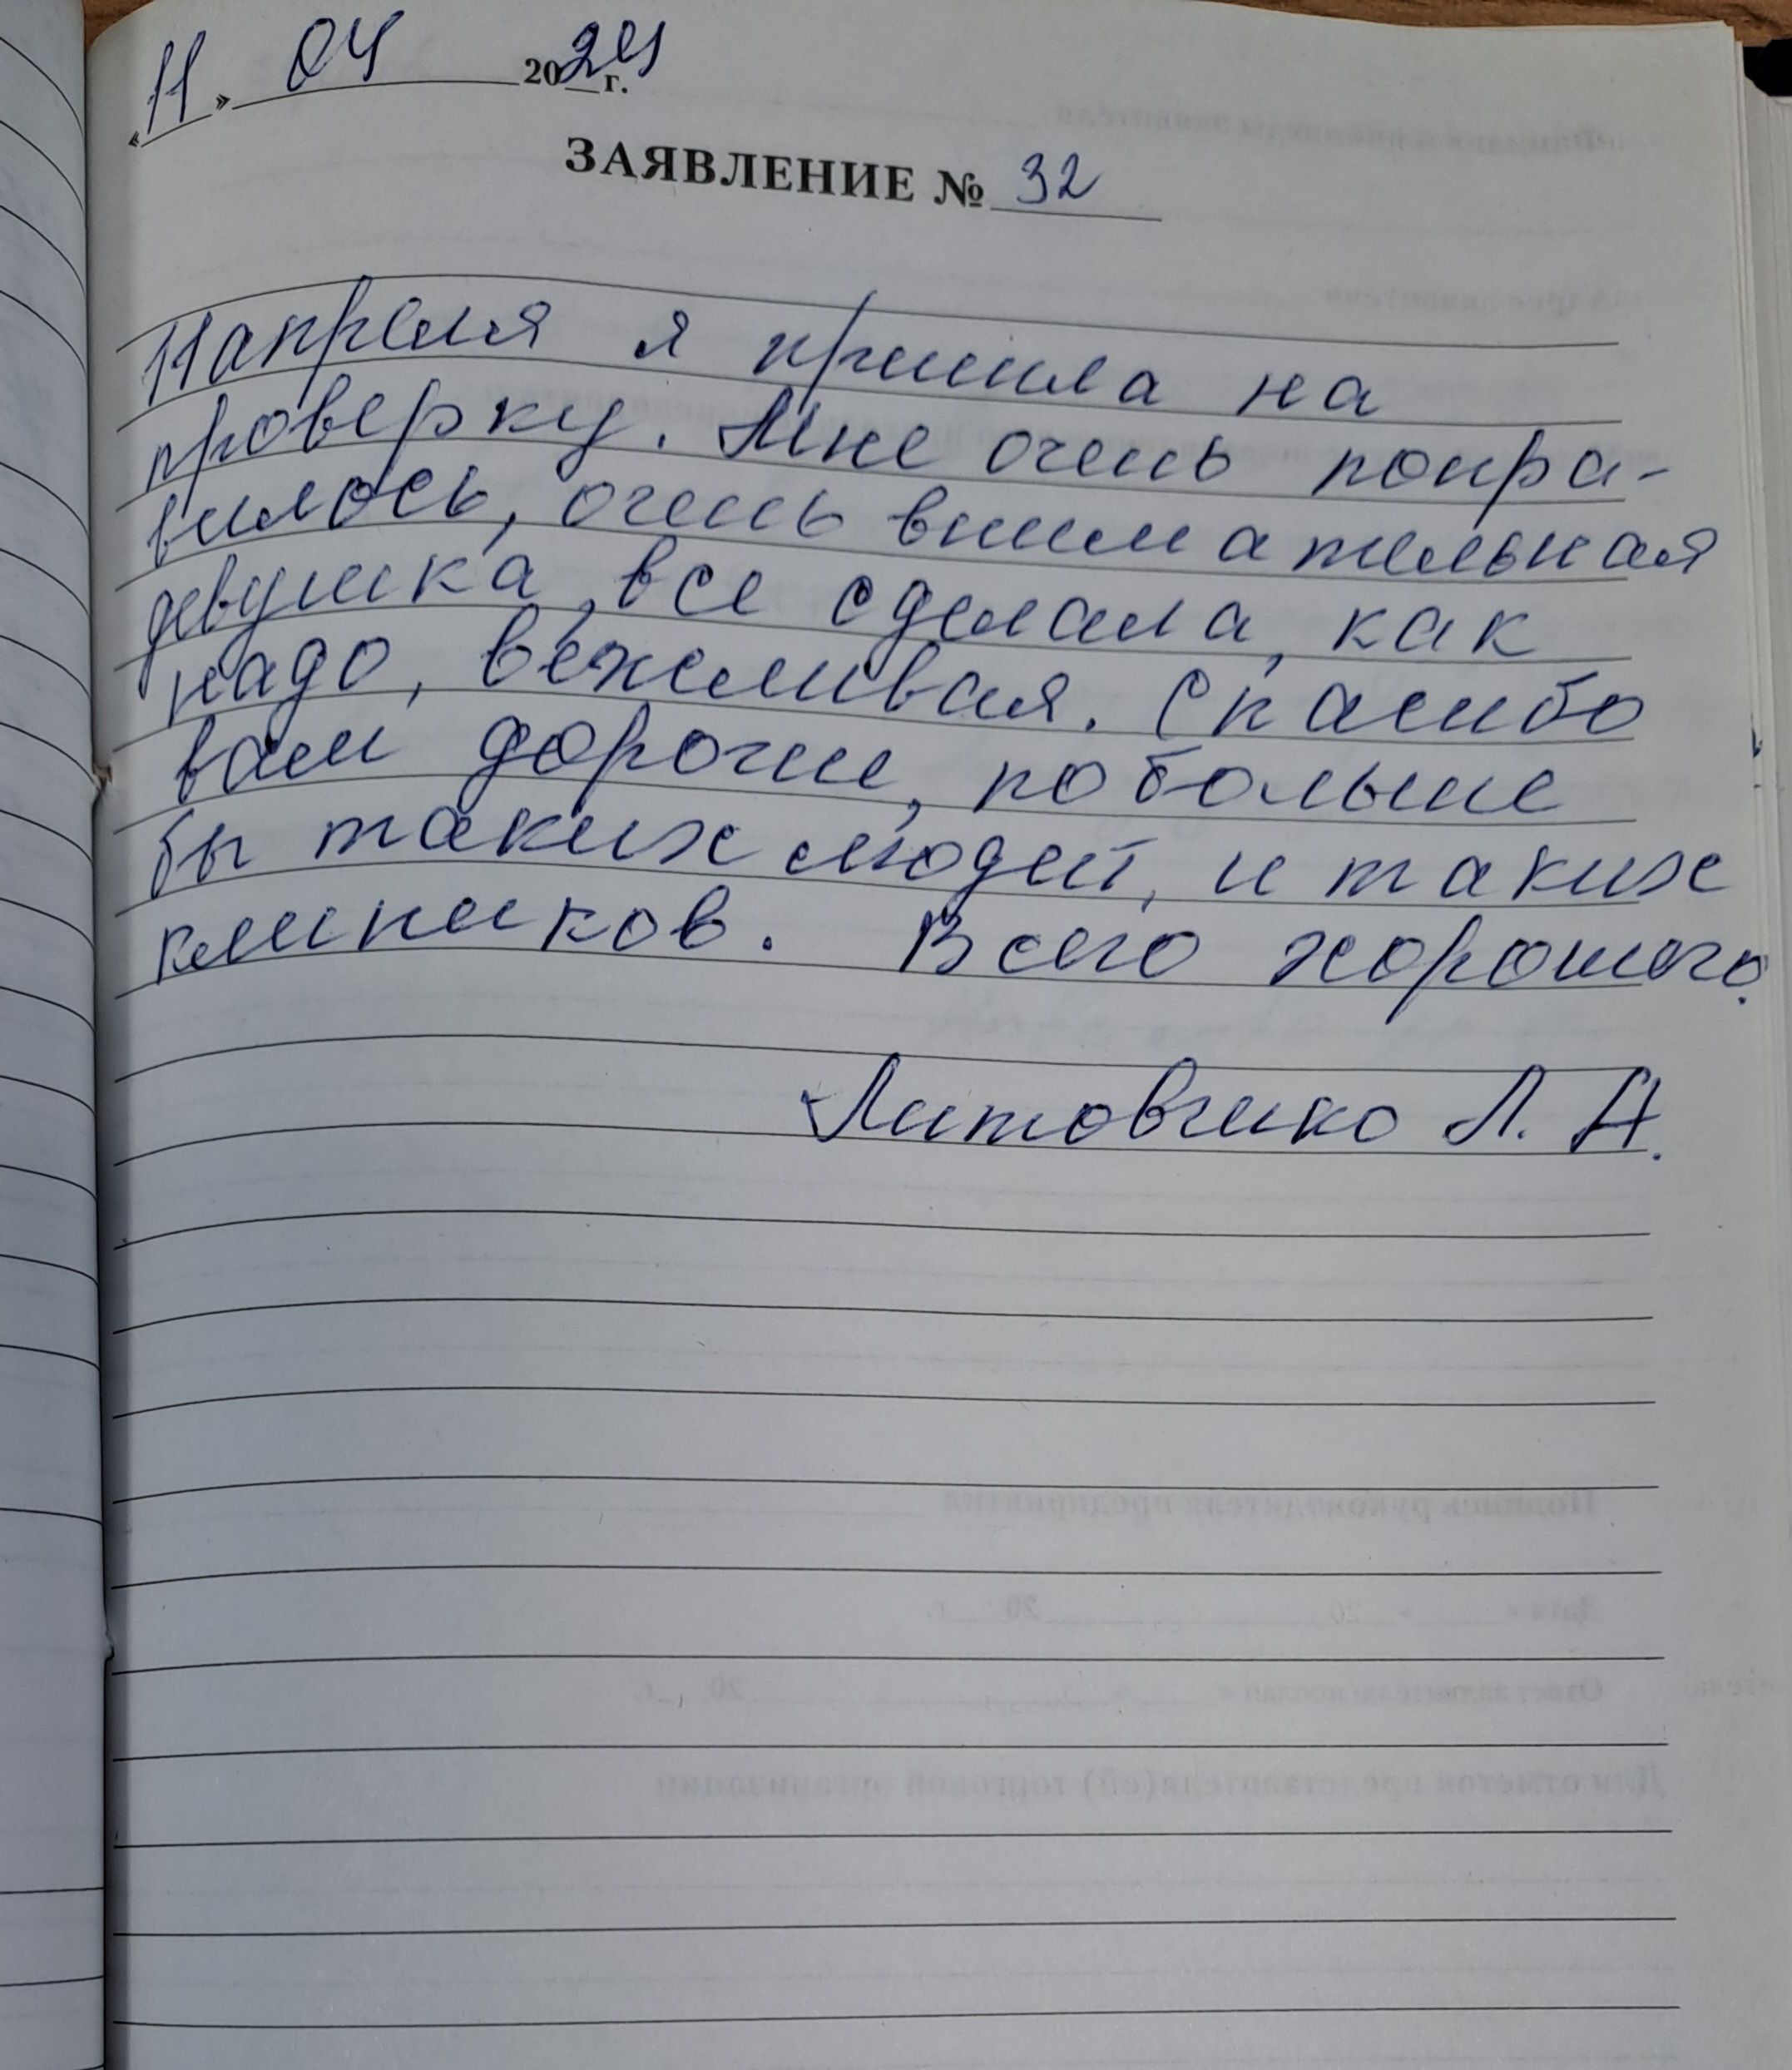 «11» 04 2024 г.
ЗАЯВЛЕНИЕ № 32
11 апреля я пришла на
проверку. Мне очень понра-
вилось, очень внимательная
девушка, все сделала, как
надо, вежливая. Спасибо
вам дорогие, побольше
бы таких людей, и таких
клиников. Всего хорошего.
Литовченко Л. А.